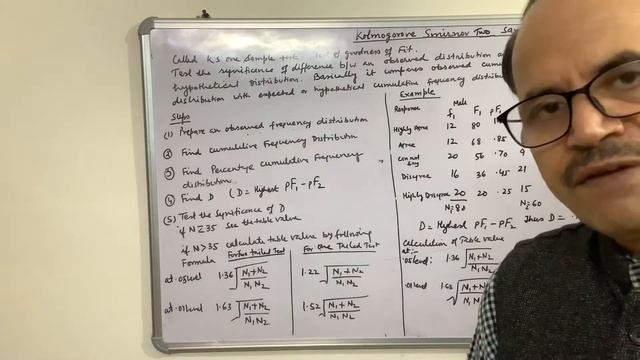 Kolmogorove Smirnov Two
Called K.S one sample test of goodness of Fit.
Test the significance of difference b/w an observed distribution
hypothetical distribution. Basically it compares observed
distribution with expected or hypothetical cumulative frequency
Steps
(1) Prepare an observed frequency distribution
(2) Find cumulative Frequency Distribution
(3) Find Percentage Cumulative Frequency
distribution.
(4) Find D (D = Highest PF1 - PF2
(5) Test the Significance of D
if N ≤ 35 See the table value
if N > 35 calculate table value by following
Formula For two tailed Test For one Tailed Test
at .05 level 1.36 √(N1+N2 / N1 N2) 1.22 √(N1+N2 / N1 N2)
at .01 level 1.63 √(N1+N2 / N1 N2) 1.52 √(N1+N2 / N1 N2)
Example
Male
Response f1 F1
Highly Agree 12 80
Agree 12 68 .85
Can not say 20 56 .70 9
Disagree 16 36 .45 21
Highly Disagree 20 20 .25 15
N1=80 N2=60
D = Highest PF1 - PF2 Thus D =
Calculation of Table value
at:-
.05 level: 1.36 √(N1+N2 / N1 N2)
.01 level 1.63 √(N1+N2 / N1 N2)